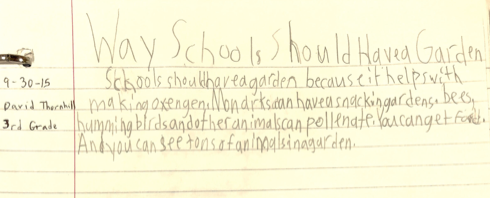 Way Schools Should Have a Garden
9-30-15
David Thornhill
3rd Grade
Schools should have a garden because it helps with
making oxengen. Monarks can have a snack in gardens. bees,
hummingbirds and other animals can pollenate. You can get food.
And you can see tons of animals in a garden.